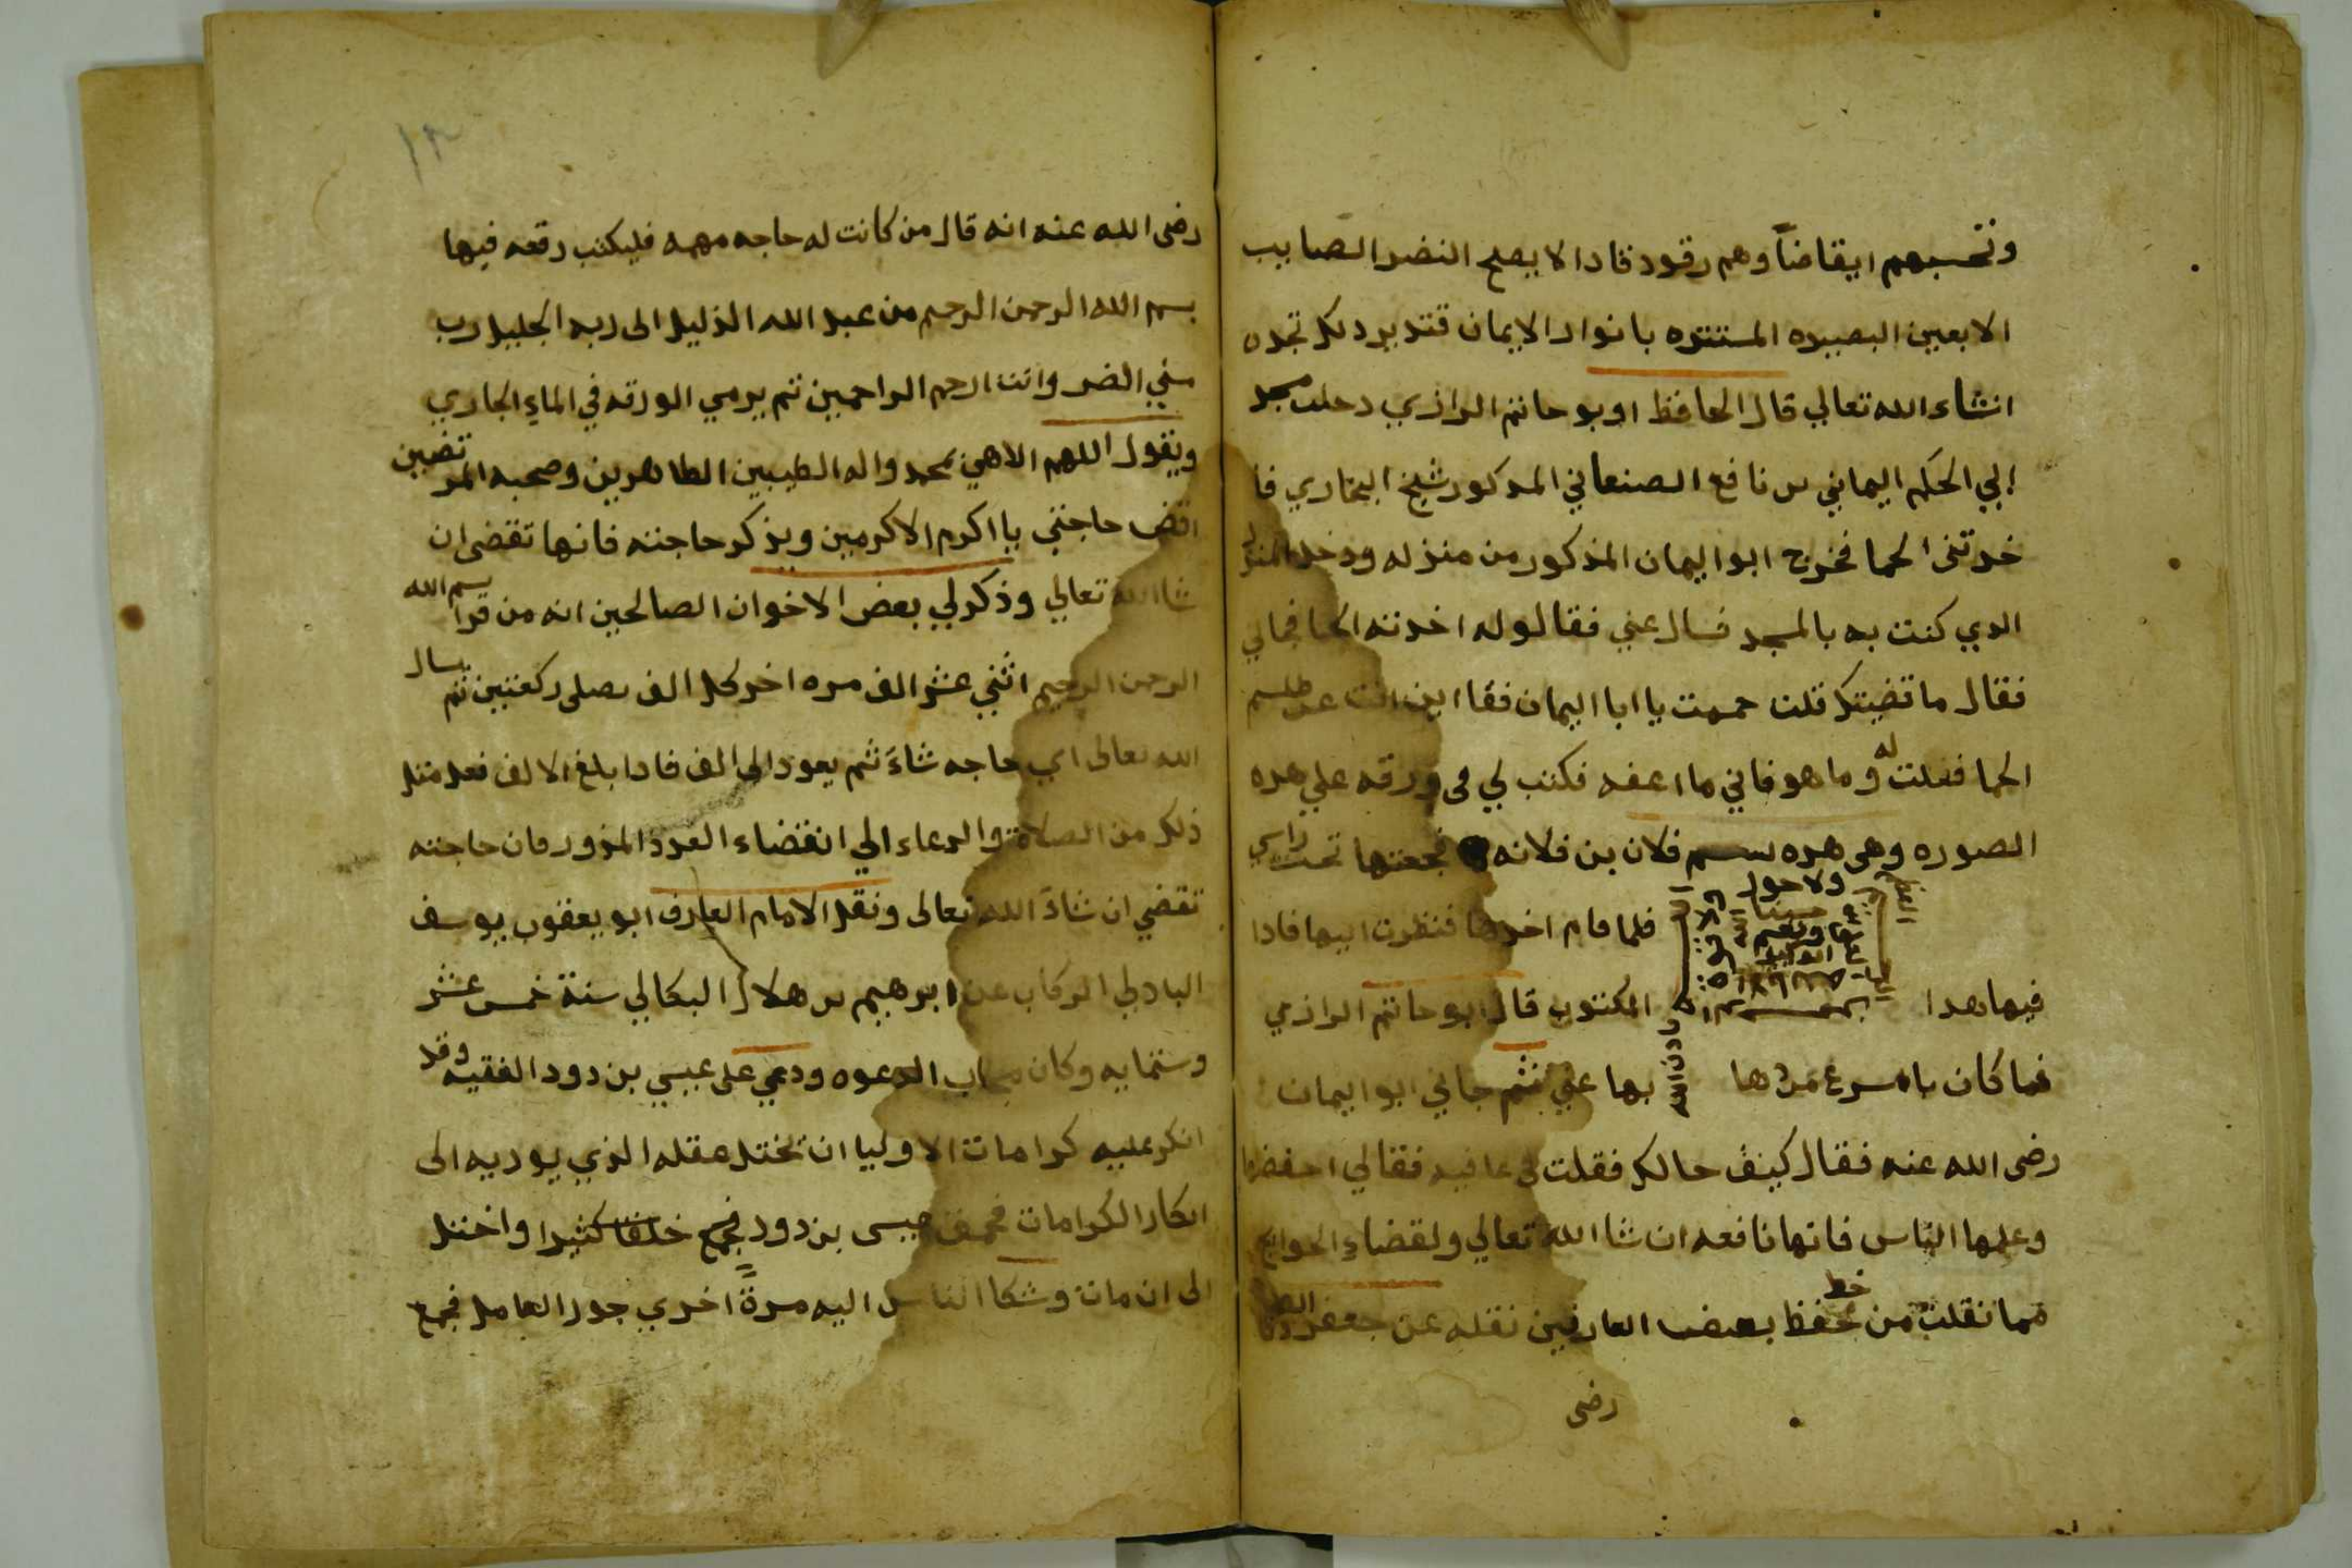 وتحسبهم ايقاضاً وهم رقود فادا لا يصح النضر الصايب
الا بعين البصيره المستنره بانوار الايمان فتدبر دلك تجده
انشاء الله تعالي قال الحافظ اوبو حاتم الرازي دخلت مسجد
ابي الحكم اليماني بن نافع الصنعاني المدكور شيخ البخاري فا
خدتنى الحما فخرج ابو اليمان المذكور من منزله ودخل المنزل
الدي كنت به بالمسجد فسال عني فقالو له اخدته الحما فجاني
فقال ما قضيتك قلت حممت يا ابا اليمان فقا اين انت عن طلسم
الحما فقلت له وما هو فاني ما اعفه فكتب لي فى ورقه علي هده
الصوره وهى هده بسم فلان بن فلانه فجعتها تحت راسي
ولا حول
حسبنا الله
ونعم
الوكيل
فلما قام اخدها فنظرت اليها فادا
فيها هدا المكتوب قال ابو حاتم الرازي
فما كان باسرع بها عني ثم جاني ابو اليمان
باذن الله
رضى الله عنه فقال كيف حالك فقلت فى عافيه فقالي احفضها
وعلمها الناس فانها نافعه ان شا الله تعالي ولقضاء الحوايج
فما نقلت من خط بعض العارفين نقله عن جعفر الصادق
رضى
١٢
رضى الله عنه انه قال من كانت له حاجه مهمه فليكتب رقعه فيها
بسم الله الرحمن الرحيم من عبد الله الذليل الى ربه الجليل رب
مسني الضر وانت ارحم الراحمين ثم يرمي الورقه في الماء الجاري
ويقول اللهم الاهي بمحمد واله الطيبين الطاهرين وصحبه المرتضين
اقض حاجتي يا اكرم الاكرمين ويذكر حاجته فانها تقضى ان
شا الله تعالي وذكر لي بعض الاخوان الصالحين انه من قرا بسم الله
الرحمن الرحيم اثني عشر الف مره اخر كل الف يصلى ركعتين ثم يسال
الله تعالى اي حاجه شاء ثم يعود الى الف فادا بلغ الالف فعل مثل
ذلك من الصلاة والدعاء الي انقضاء العدد المزور فان حاجته
تقضي ان شاء الله تعالى ونقل الامام العارف ابو يعقوب يوسف
البادلي الركاب عن ابرهيم بن هلال البكالي سنة خمس عشر
وستمايه وكان مجاب الدعوه ودعي على عيسي بن دود الفقيه وقد
انكر عليه كرامات الاوليا ان يختل عقله الذي يوديه الى
انكار الكرامات فحمق عيسى بن دود فجمع خلقا كثيرا واختل
الى ان مات وشكا الناس اليه مرةً اخري جور العامل فجمع